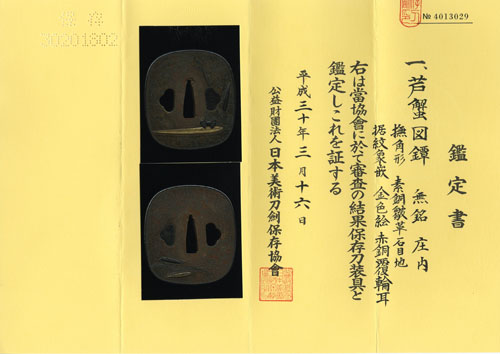 № 4013029
保存
30201802
鑑定書
一、芦蟹図鐔 無銘 庄内
撫角形 素銅皺革石目地
据紋象嵌 金色絵 赤銅覆輪耳
右は當協會に於て審査の結果保存刀装具と
鑑定しこれを証する
平成三十年三月十六日
公益財團法人日本美術刀劍保存協會